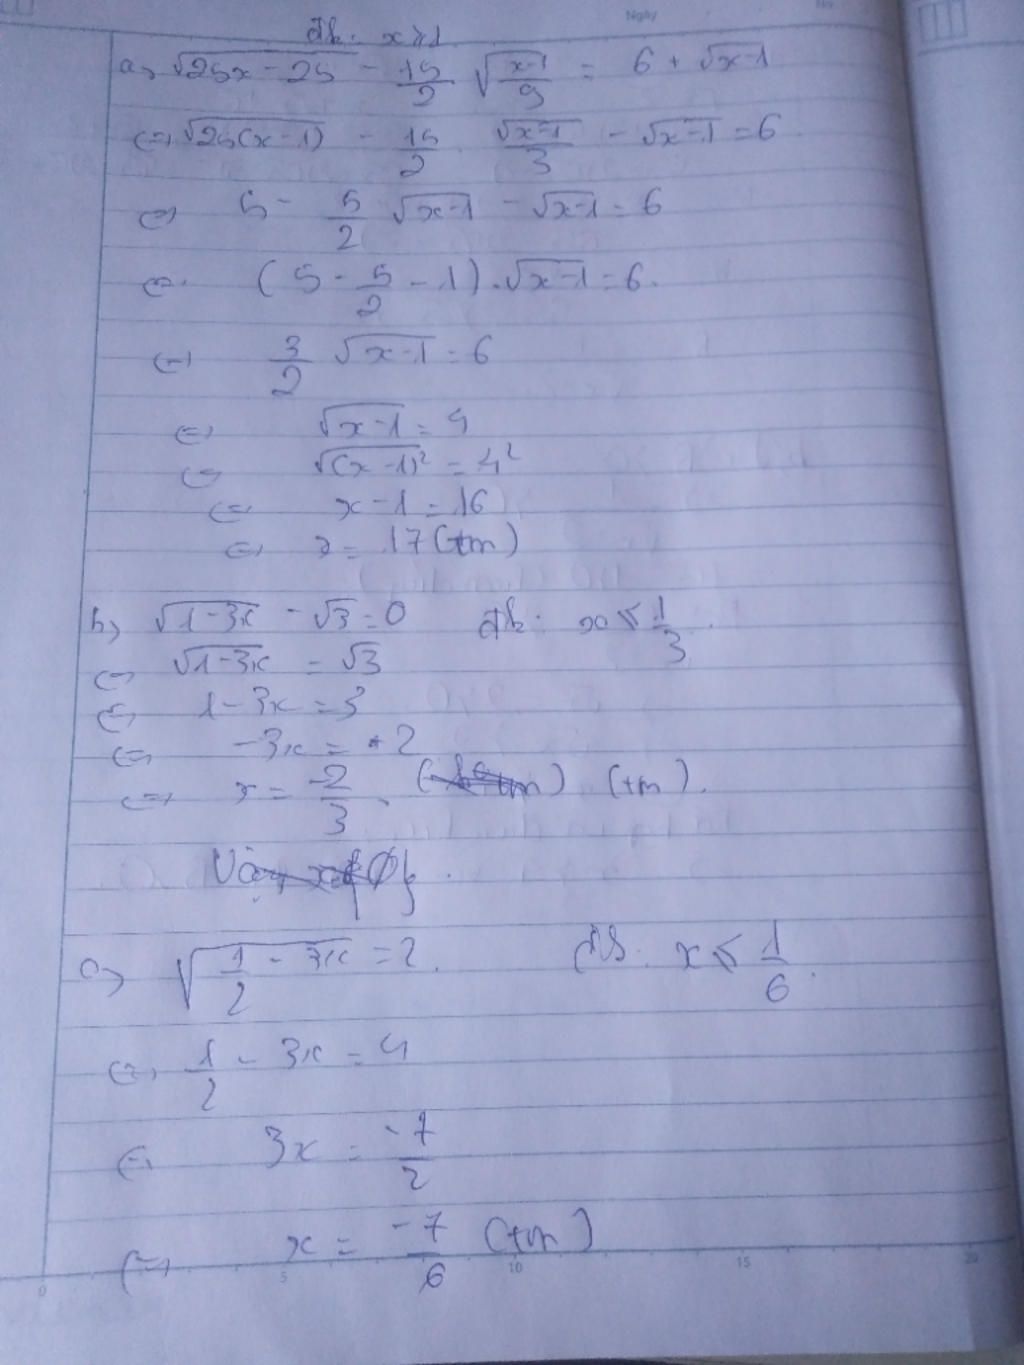 Ngày
No
đk: x ≥ 1
a, √(25x - 25) - 15/2 √((x-1)/9) = 6 + √(x-1)
<=> √(25(x-1)) - 15/2 . √(x-1)/3 - √(x-1) = 6
<=> 5 - 5/2 √(x-1) - √(x-1) = 6
<=> (5 - 5/2 - 1).√(x-1) = 6.
<=> 3/2 √(x-1) = 6
<=> √(x-1) = 4
<=> √(x-1)² = 4²
<=> x - 1 = 16
<=> x = 17 (tm)
b, √(1-3x) - √3 = 0 đk: x ≤ 1/3.
<=> √(1-3x) = √3
<=> 1 - 3x = 3
<=> -3x = 2
<=> x = -2/3. (tm).
c, √(1/2 - 3x) = 2. đk: x ≤ 1/6.
<=> 1/2 - 3x = 4
<=> 3x = -7/2
<=> x = -7/6 (tm)
0 5 10 15 20